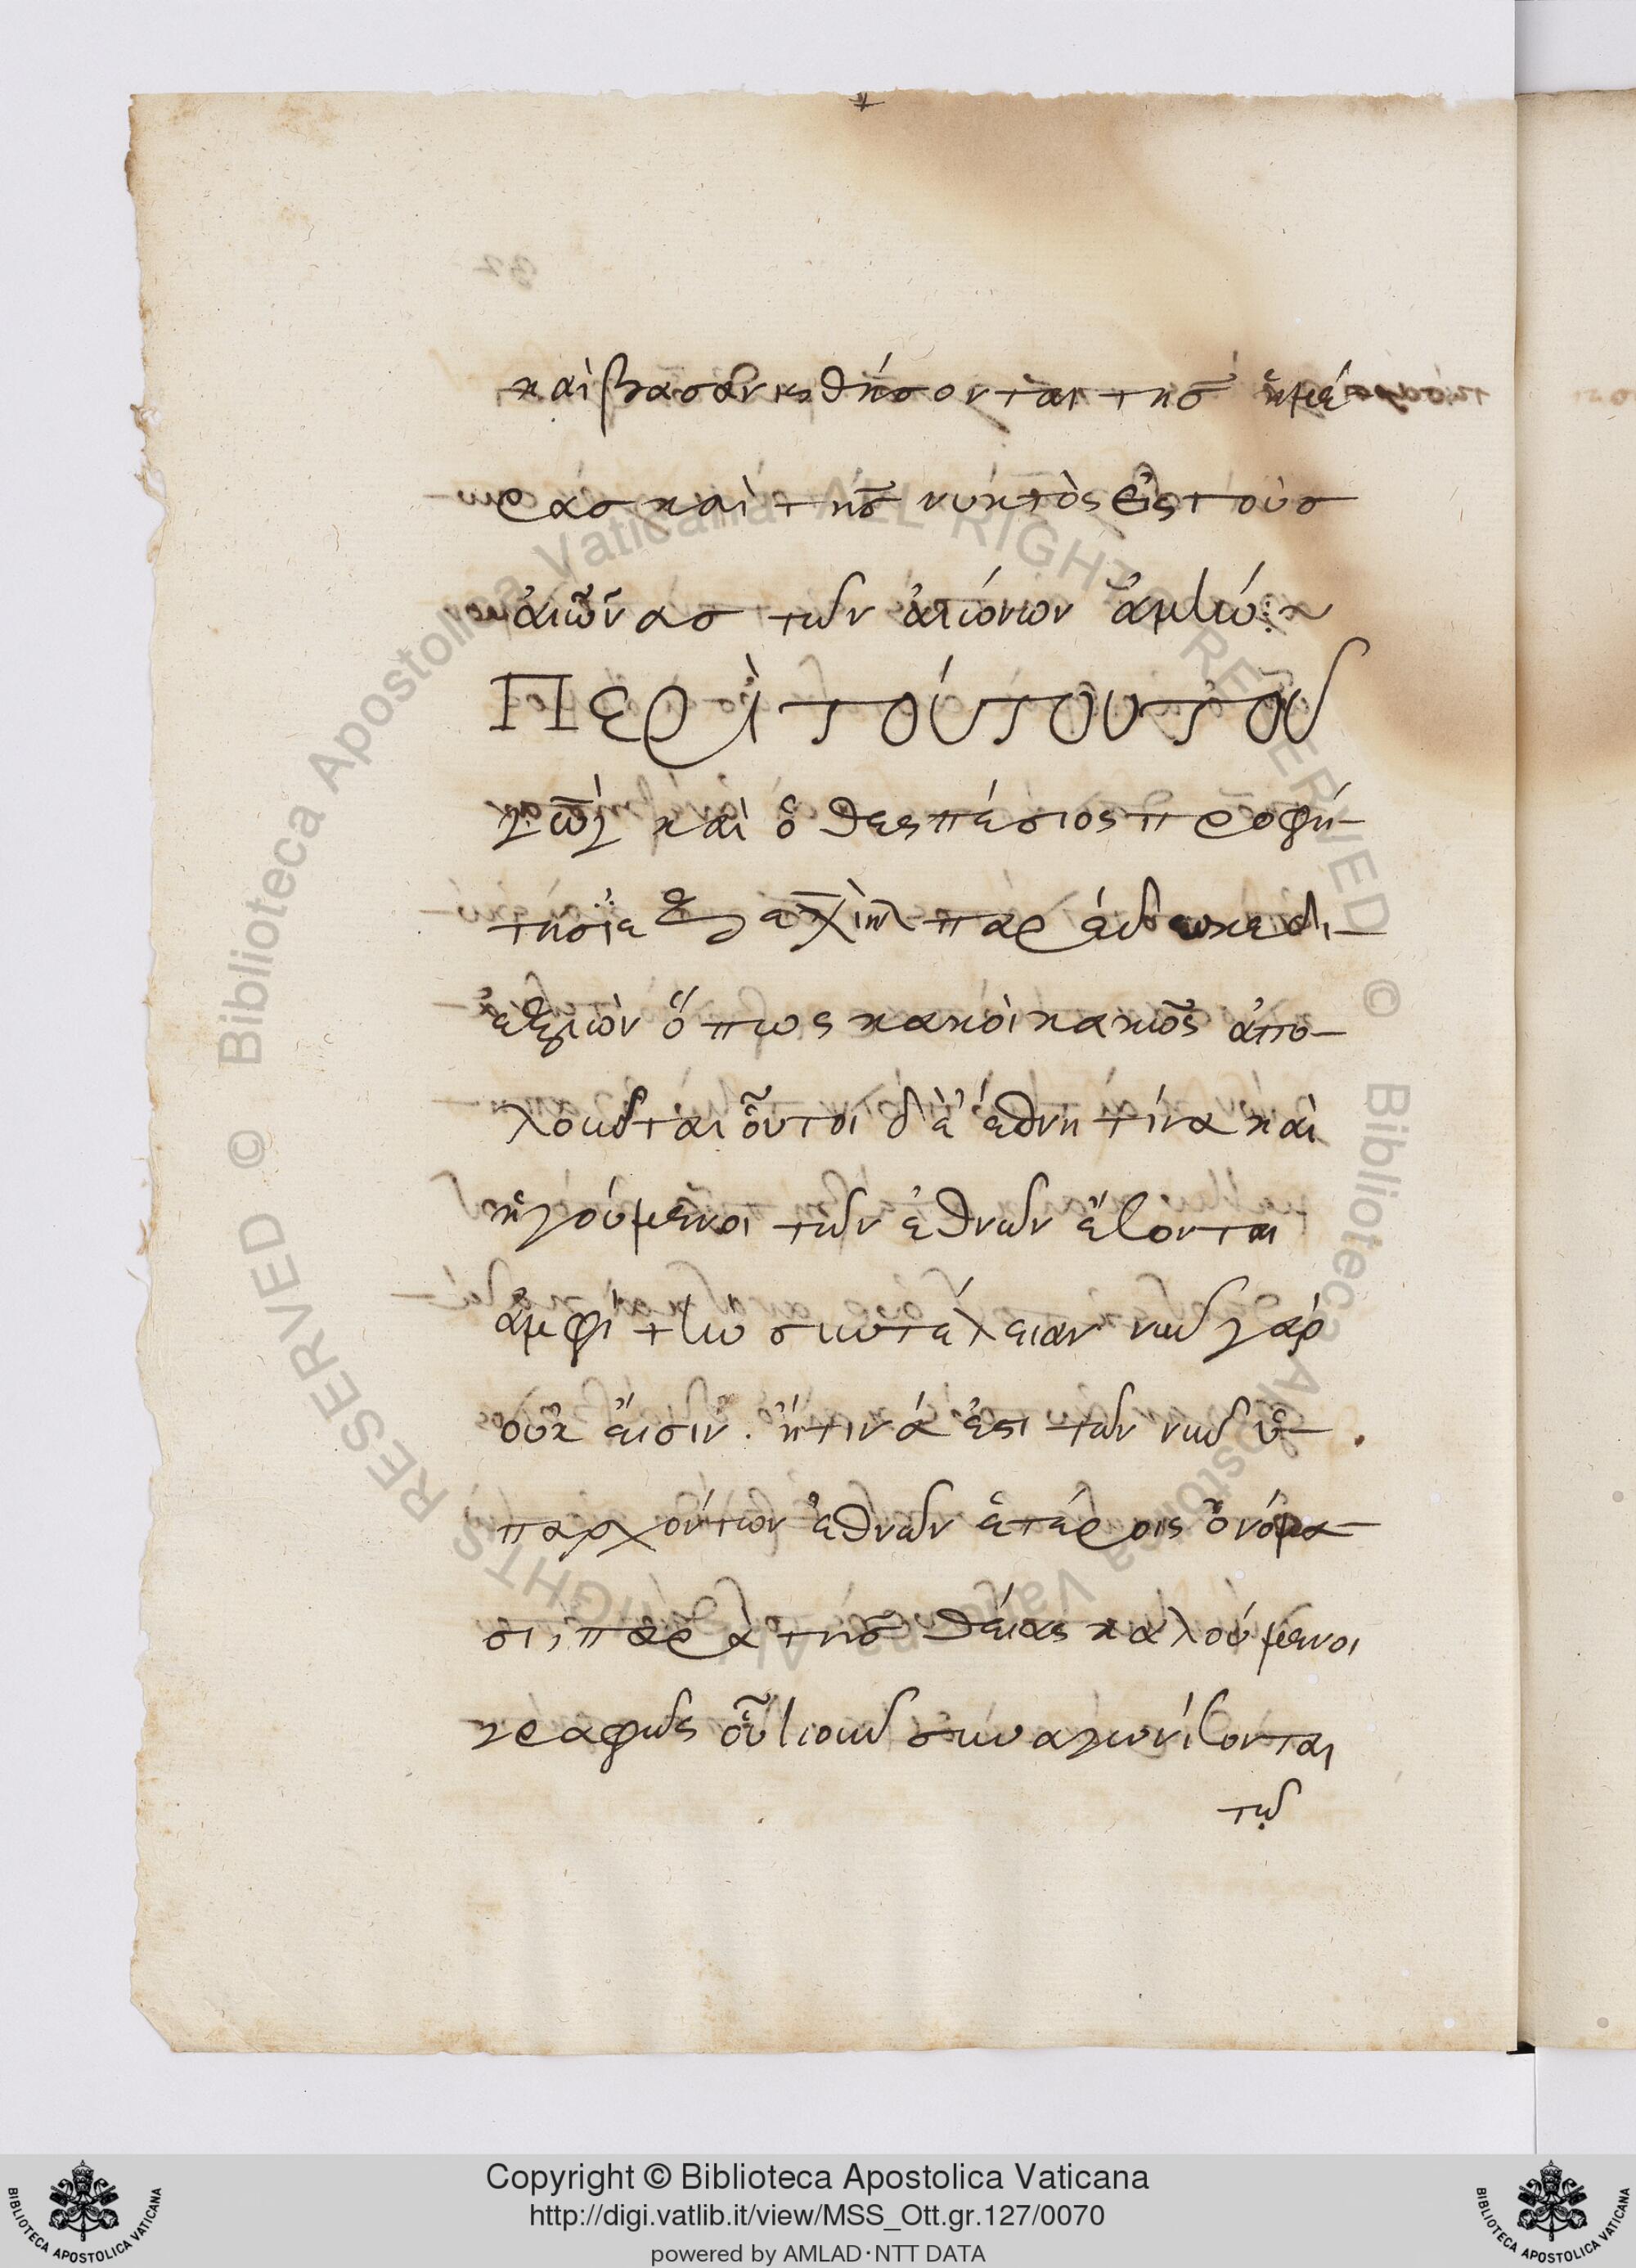 καὶ βασανισθήσονται τῆς ἡμέ-
ρας καὶ τῆς νυκτὸς εἰς τοὺς
αἰῶνας τῶν αἰώνων ἀμήν:~
Περὶ τούτου τοῦ
γὼγ καὶ ὁ θεσπέσιος προφή-
της ἰεζεχιὴλ παρέδωκε δι-
εξιὼν ὅπως κακοὶ κακῶς ἀπο-
λοῦνται οὗτοι δὲ ἔθνη τίνα καὶ
ἡγούμενοι τῶν ἐθνῶν ἥξονται
ἀμφὶ τὴν συντέλειαν νῦν γὰρ
οὐκ εἰσὶν. ἤτινά ἐστι τῶν νῦν ὑ-
παρχόντων ἐθνῶν ἑτέροις ὀνόμα-
σι, παρὰ τῆς θείας καλούμενοι
γραφῆς συναγωνίζονται
τῷ
Copyright © Biblioteca Apostolica Vaticana
http://digi.vatlib.it/view/MSS_Ott.gr.127/0070
powered by AMLAD·NTT DATA
BIBLIOTECA APOSTOLICA VATICANA
BIBLIOTECA APOSTOLICA VATICANA
© Biblioteca Apostolica Vaticana ALL RIGHTS RESERVED © Biblioteca Apostolica Vaticana ALL RIGHTS RESERVED